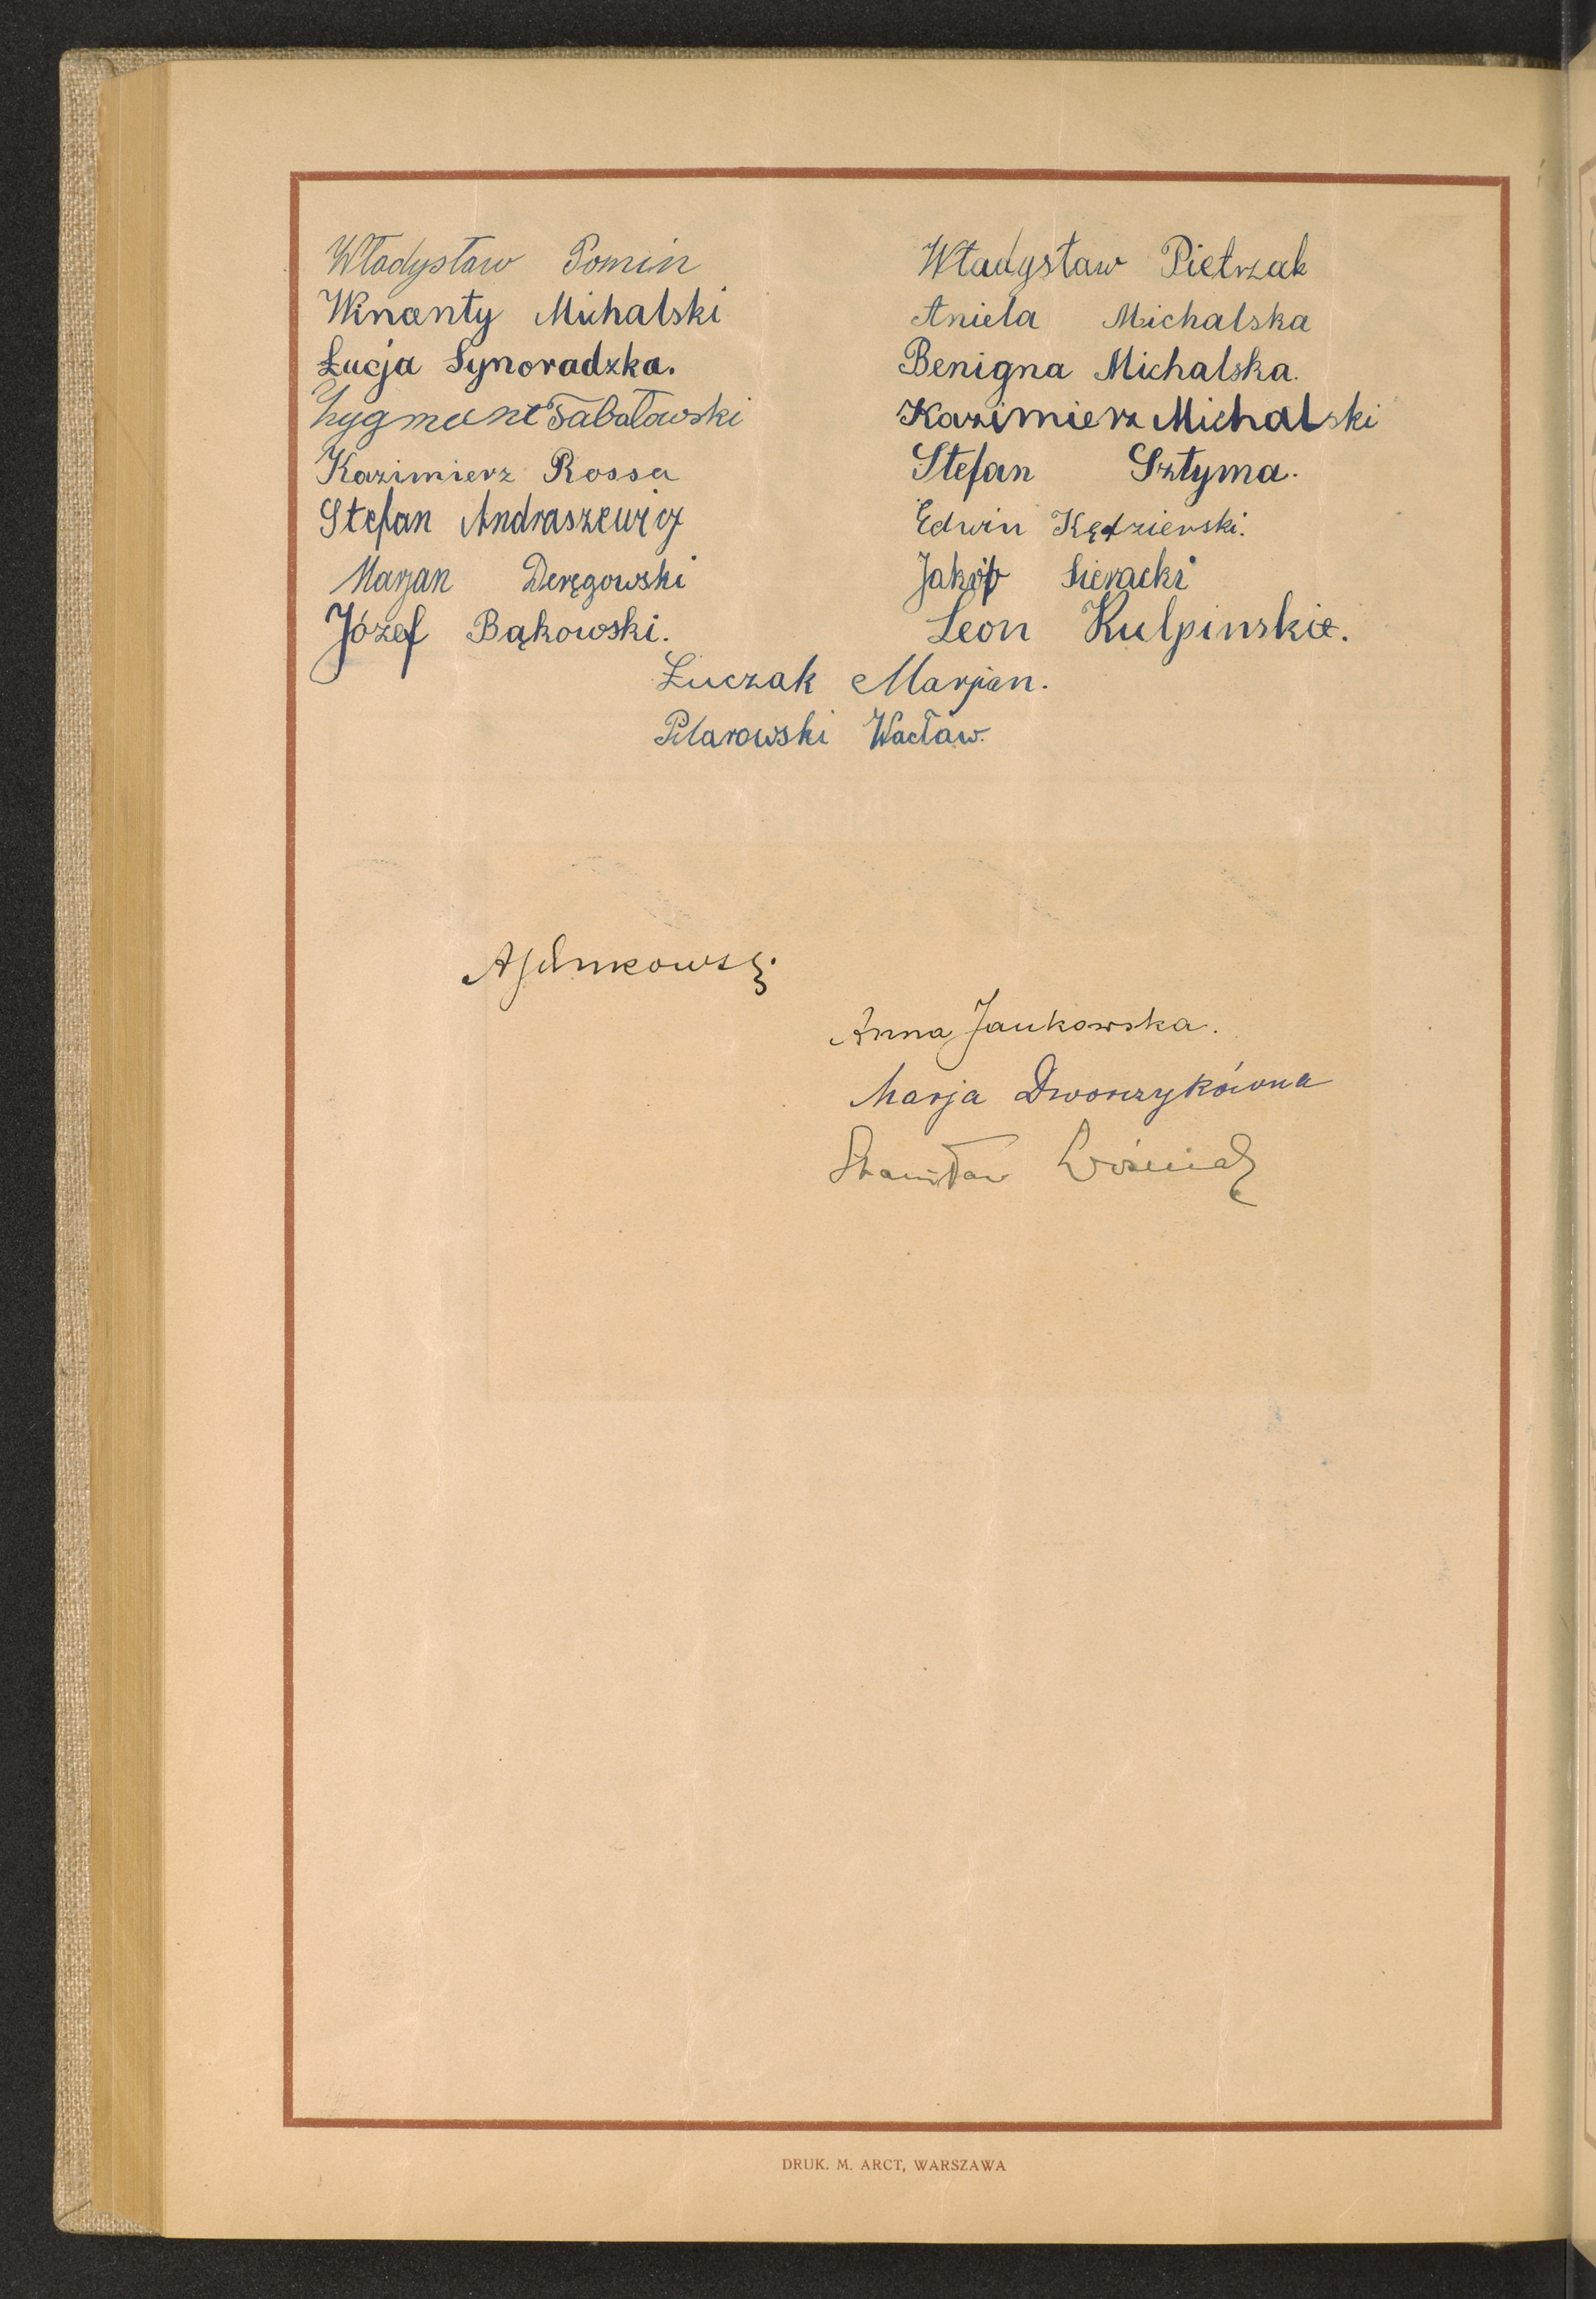 Władysław Pomin
Wincenty Michalski
Łucja Synoradzka.
Zygmunt Tabałowski
Kazimierz Rossa
Stefan Andraszewicz
Marjan Deręgowski
Józef Bąkowski.
Władysław Pietrzak
Aniela Michalska
Benigna Michalska.
Kazimierz Michalski
Stefan Sztyma.
Edwin Kędzierski.
Jakób Sieracki
Leon Kulpinski.
Łuczak Marjan.
Pilarowski Wacław.
Anna Jankowska.
Marja Dworzykówna
Stanisław Woźniak
DRUK. M. ARCT, WARSZAWA